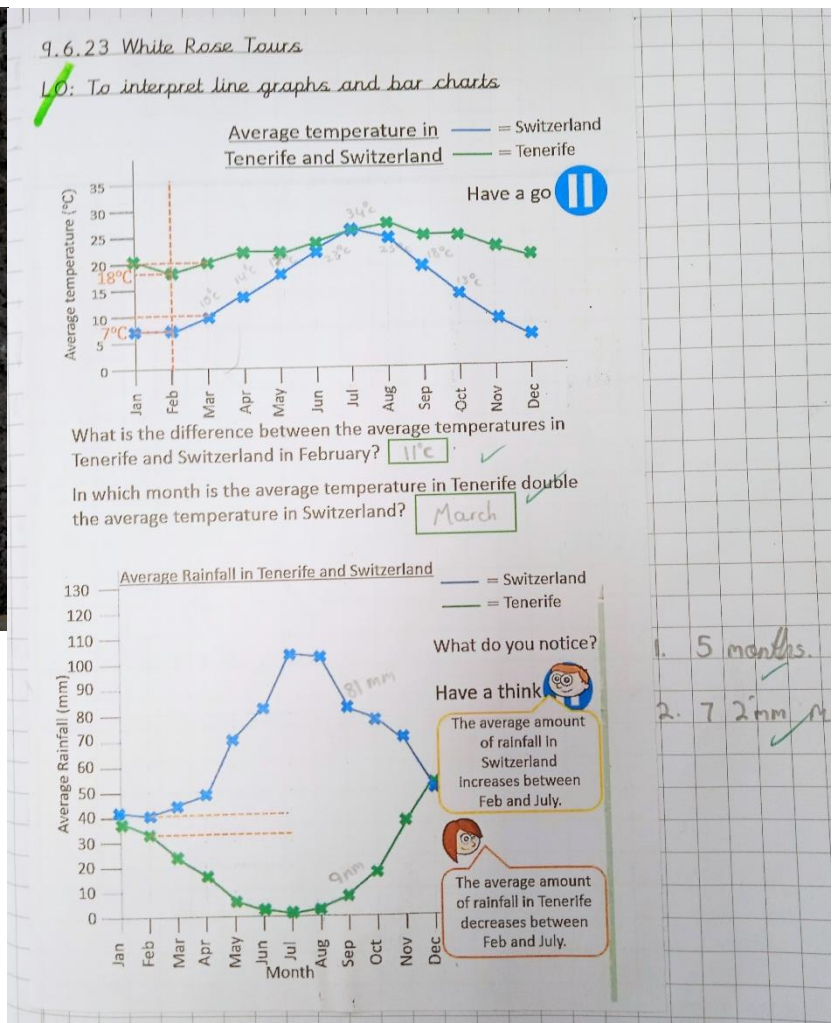 9.6.23 White Rose Tours
LO: To interpret line graphs and bar charts
Average temperature in
Tenerife and Switzerland
= Switzerland
= Tenerife
Have a go
Average temperature (°C)
35
30
25
20
18°C
15
10
7°C
5
0
34°c
10°c
14°c
23°c
18°c
13°c
Jan
Feb
Mar
Apr
May
Jun
Jul
Aug
Sep
Oct
Nov
Dec
What is the difference between the average temperatures in
Tenerife and Switzerland in February? 11°c
In which month is the average temperature in Tenerife double
the average temperature in Switzerland? March
Average Rainfall in Tenerife and Switzerland
= Switzerland
= Tenerife
Average Rainfall (mm)
130
120
110
100
90
80
70
60
50
40
30
20
10
0
81 mm
9mm
Jan
Feb
Mar
Apr
May
Jun
Jul
Aug
Sep
Oct
Nov
Dec
Month
What do you notice?
Have a think
The average amount
of rainfall in
Switzerland
increases between
Feb and July.
The average amount
of rainfall in Tenerife
decreases between
Feb and July.
1. 5 months.
2. 7 2mm